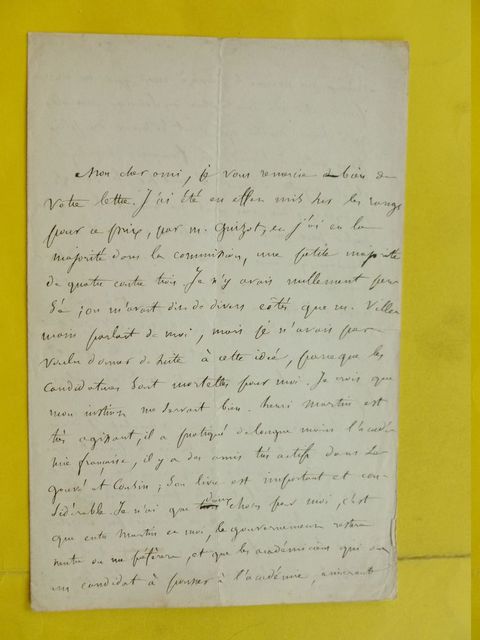 Mon cher ami, je vous remercie bien de
votre lettre. J'ai été en effet mis sur les rangs
pour ce prix, par m. Guizot, et j'ai eu la
majorité dans la commission, une petite majorité
de quatre contre trois. Je n'y avais nullement pen
sé ; on m'avait dit de divers côtés que m. Ville
main parlait de moi, mais je n'avais pas
voulu donner de suite à cette idée, parce que les
candidatures sont mortelles pour moi. Je crois que
mon me servait bien. henri Martin est
très agissant, il a pratiqué de longue main l'acadé
mie française, il y a des amis très actifs dans
et Cousin ; son livre est important et con
sidérable. Je n'ai que deux choses pour moi, c'est
que entre Martin et moi, le gouvernement restera
neutre ou me préfèrera, et que les académiciens qui ont
un candidat à pousser à l'académie, aimeront